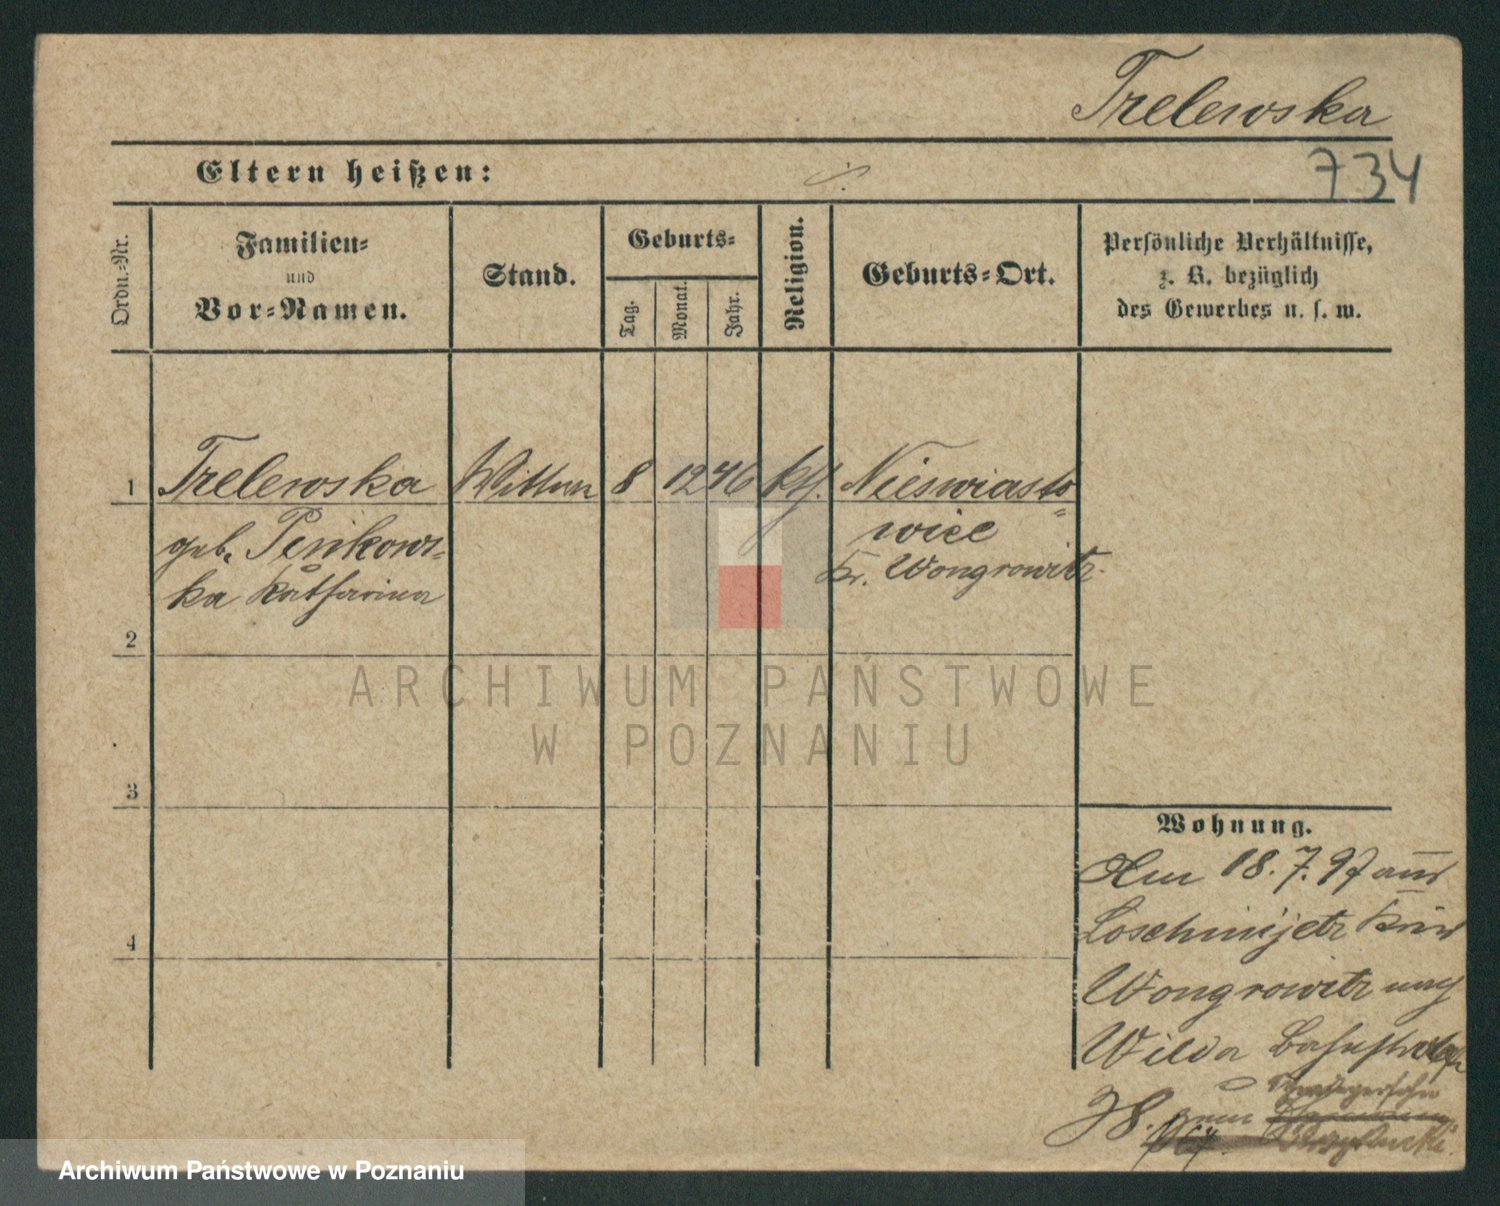 Trelewska
734
Eltern heißen:
Ordn.-Nr.
Familien-
und
Vor-Namen.
Stand.
Geburts-
Tag.
Monat.
Jahr.
Religion.
Geburts-Ort.
Persönliche Verhältnisse,
z. B. bezüglich
des Gewerbes u. s. w.
1 Trelewska Wittwe 8 12 46 kth. Nieswiasto
geb. Penkows- wice
ka Katharina Kr. Wongrowitz
2
3
4
Wohnung.
Am 18.7.97 aus
Loschinijetz Kreis
Wongrowitz nach
Wilda Bahnstraße
28. zum Schwiegersohn
ARCHIWUM PAŃSTWOWE
W POZNANIU
Archiwum Państwowe w Poznaniu